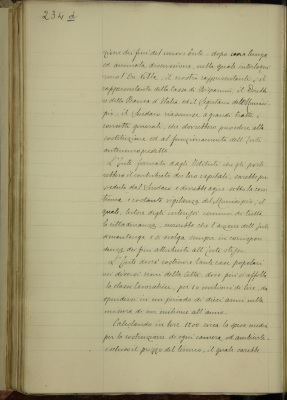 234 d
zione dei fini del nuovo Ente, dopo una lunga
ed animata discussione, nella quale interloqui-
rono l'On. Villa, il nostro rappresentante, il
rappresentante della Cassa di Risparmi, il Diret-
tore della Banca d'Italia ed il Segretario del Munici-
pio, il Sindaco riassunse a grandi tratti i
concetti generali, che dovrebbero presiedere alla
costituzione ed al funzionamento dell'Ente
autonomo predetto.
L'Ente formato dagli Istituti che gli porte-
rebbero il contributo dei loro capitali, sarebbe pre-
sieduto dal Sindaco e dovrebbe agire sotto la con-
tinua e costante vigilanza del Municipio, il
quale, tutore degli interessi comuni di tutta
la cittadinanza, curerebbe che l'azione dell'Ente
si svolga sempre in corrispon-
denza dei fini attribuiti all'Ente stesso.
L'Ente dovrà costruire tante case popolari
in diversi rioni della città, dove più si affolla
la classe lavoratrice, per 20 milioni di lire, da
spendersi in un periodo di dieci anni nella
misura di due milioni all'anno.
Calcolando in lire 1500 circa la spesa media
per la costruzione di ogni camera, od ambiente,
escluso il prezzo del terreno, il quale sarebbe